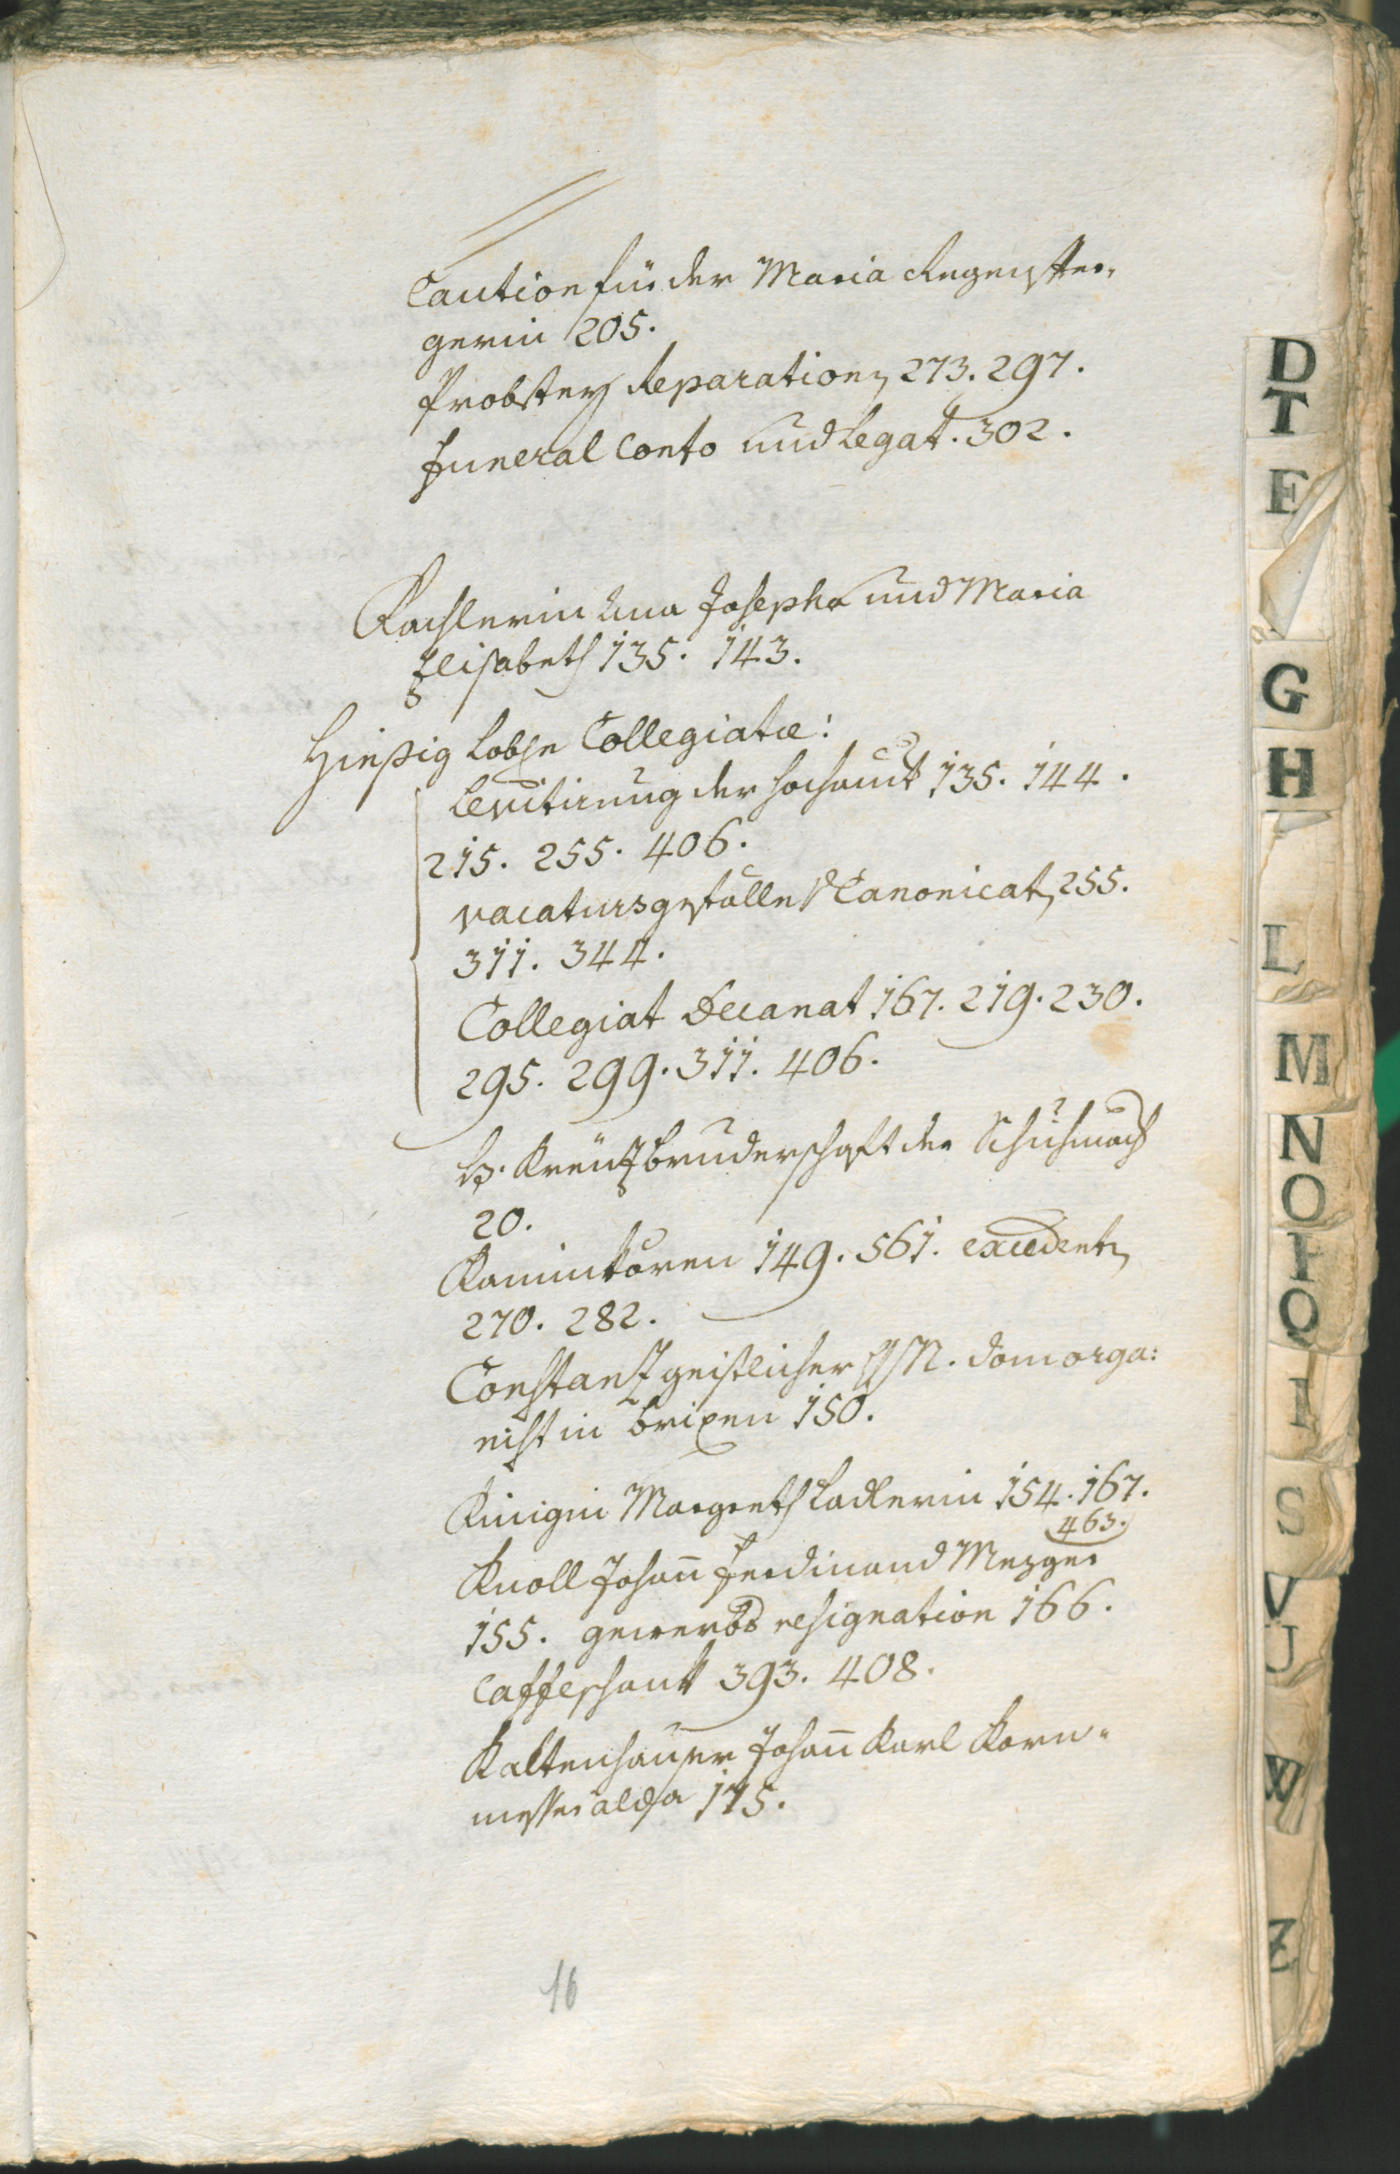 Caution für der Maria
gerin 205.
Probstey Reparation 273. 297.
Funeral Conto und Legat. 302.
Kachlerin Ana Josepha und Maria
Elisabeth 135. 143.
Hiesig Lobse Collegiatæ:
Levitirung der hochamt 135. 144.
215. 255. 406.
vacatursgefälle Canonicat 255.
311. 344.
Collegiat Decanat 167. 219. 230.
295. 299. 311. 406.
H. Kreutzbruderschaft der Schuhmach
20.
149. 561. excedent
270. 282.
Constantz geistlicher H. N. domorga:
nist in Brixen 150.
Kinigin Margreth Ladlerin 154. 167.
463.
Knoll Johan Ferdinand Mezger
155. gewerbs resignation 166.
Caffeschank 393. 408.
Kaltenhauser Johan Karl Korn-
messer alda 175.
16
D
T
F
G
H
L
M
N
O
P
Q
I
S
V
U
W
Z